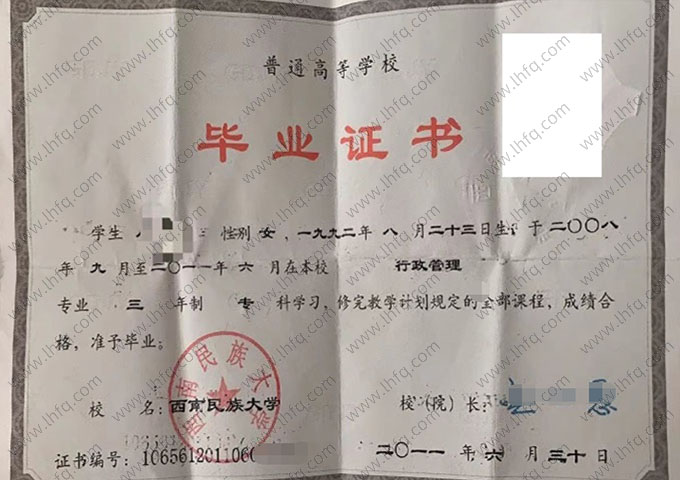 普通高等学校
毕业证书
学生 性别 女，一九九二年 八 月二十三日生，于二〇〇八
年 九 月至二〇一一年 六 月在本校 行政管理
专业 三 年制 专 科学习，修完教学计划规定的全部课程，成绩合
格，准予毕业。
西南民族大学
校 名：西南民族大学 校（院）长：
证书编号：1065612011060 二〇一一 年 六 月 三十 日
www.lhfq.com